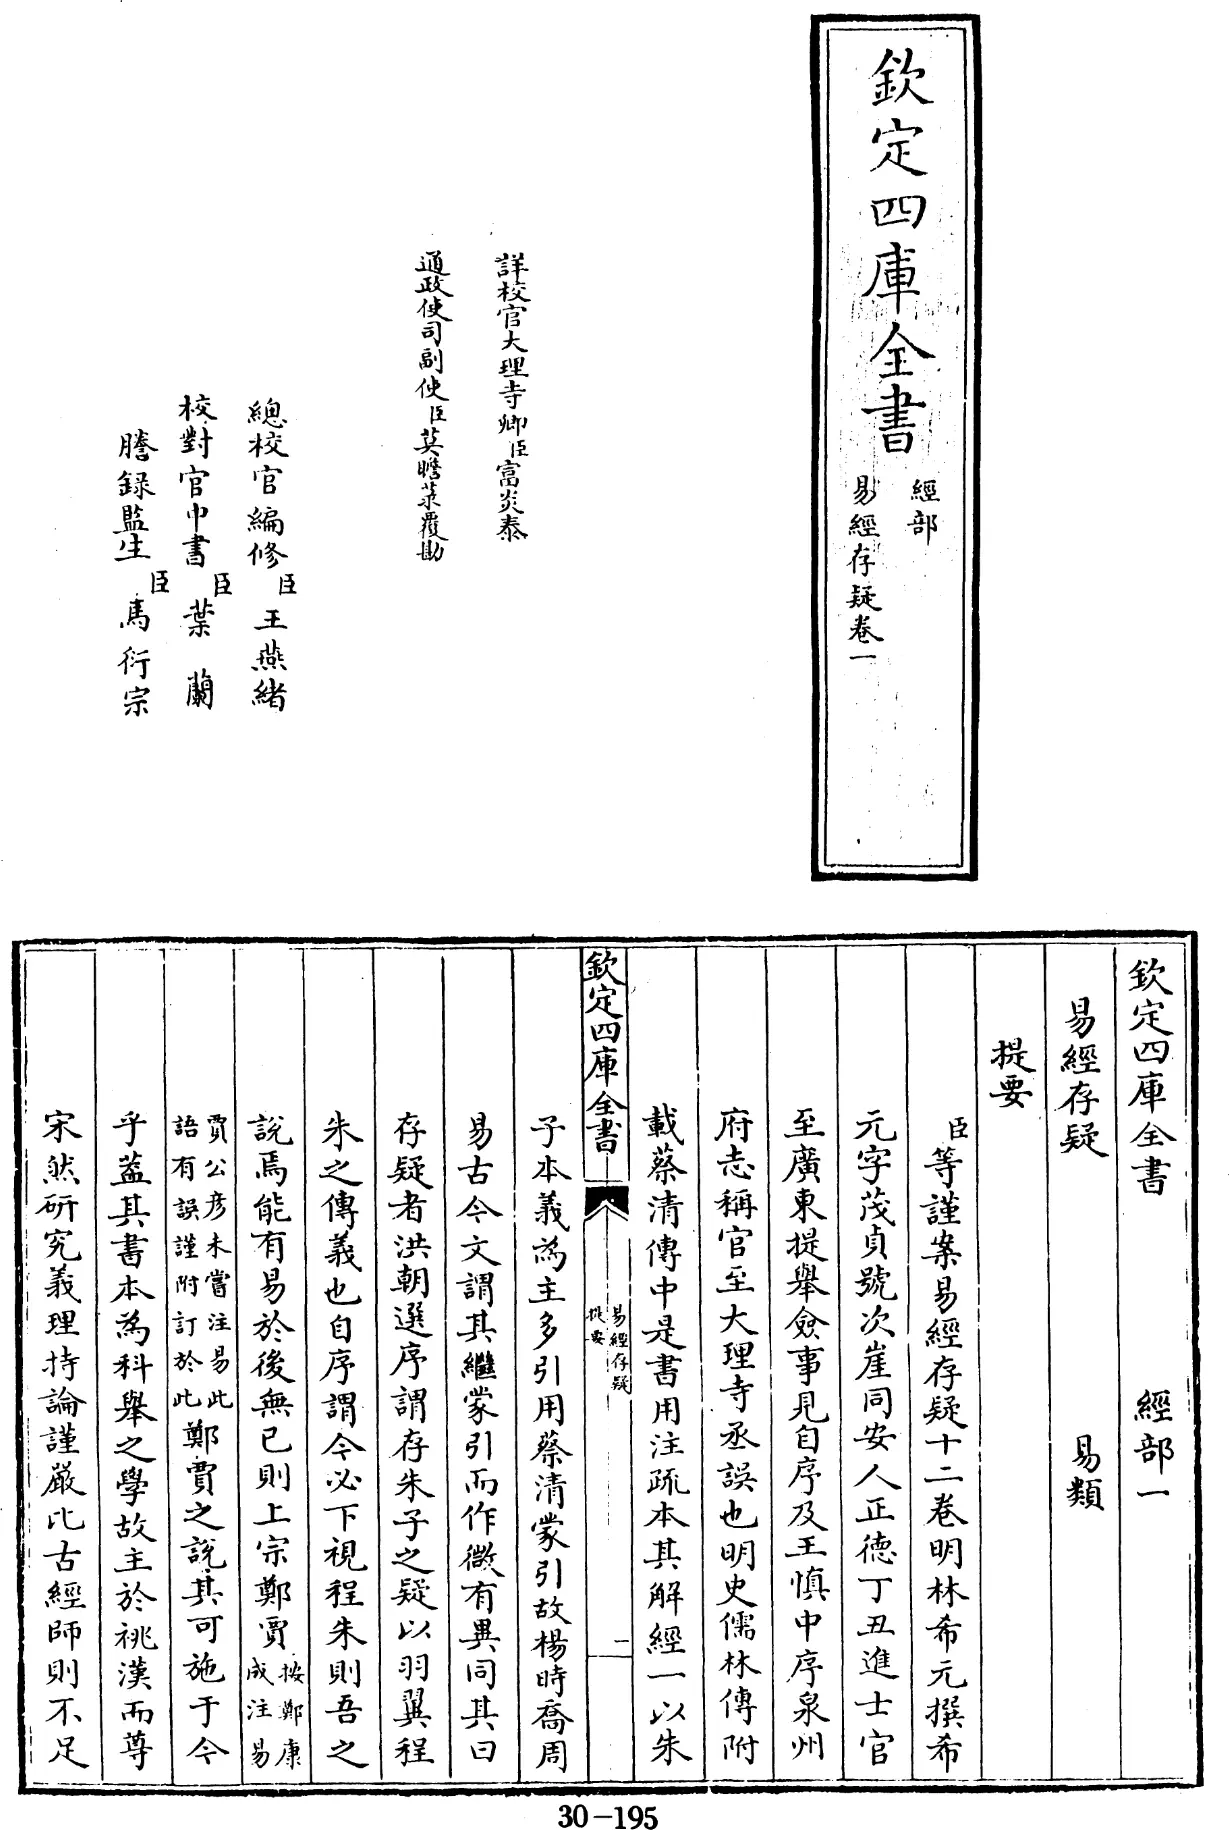 欽定四庫全書
經部
易經存疑卷一
詳校官大理寺卿臣富炎泰
通政使司副使臣莫瞻菉覆勘
總校官編修臣王燕緒
校對官中書臣葉蘭
謄録監生臣馬衍宗
欽定四庫全書 經部一
易經存疑 易類
提要
臣等謹案易經存疑十二卷明林希元撰希
元字茂貞號次崖同安人正德丁丑進士官
至廣東提舉僉事見自序及王慎中序泉州
府志稱官至大理寺丞誤也明史儒林傳附
載蔡清傳中是書用注疏本其解經一以朱
欽定四庫全書
易經存疑
提要
一
子本義為主多引用蔡清蒙引故楊時喬周
易古今文謂其繼蒙引而作微有異同其曰
存疑者洪朝選序謂存朱子之疑以羽翼程
朱之傳義也自序謂今必下視程朱則吾之
說焉能有易於後無已則上宗鄭賈按鄭康成注易
賈公彦未嘗注易此語有誤謹附訂於此鄭賈之說其可施于今
乎葢其書本為科舉之學故主於祧漢而尊
宋然研究義理持論謹嚴比古經師則不足
30-195